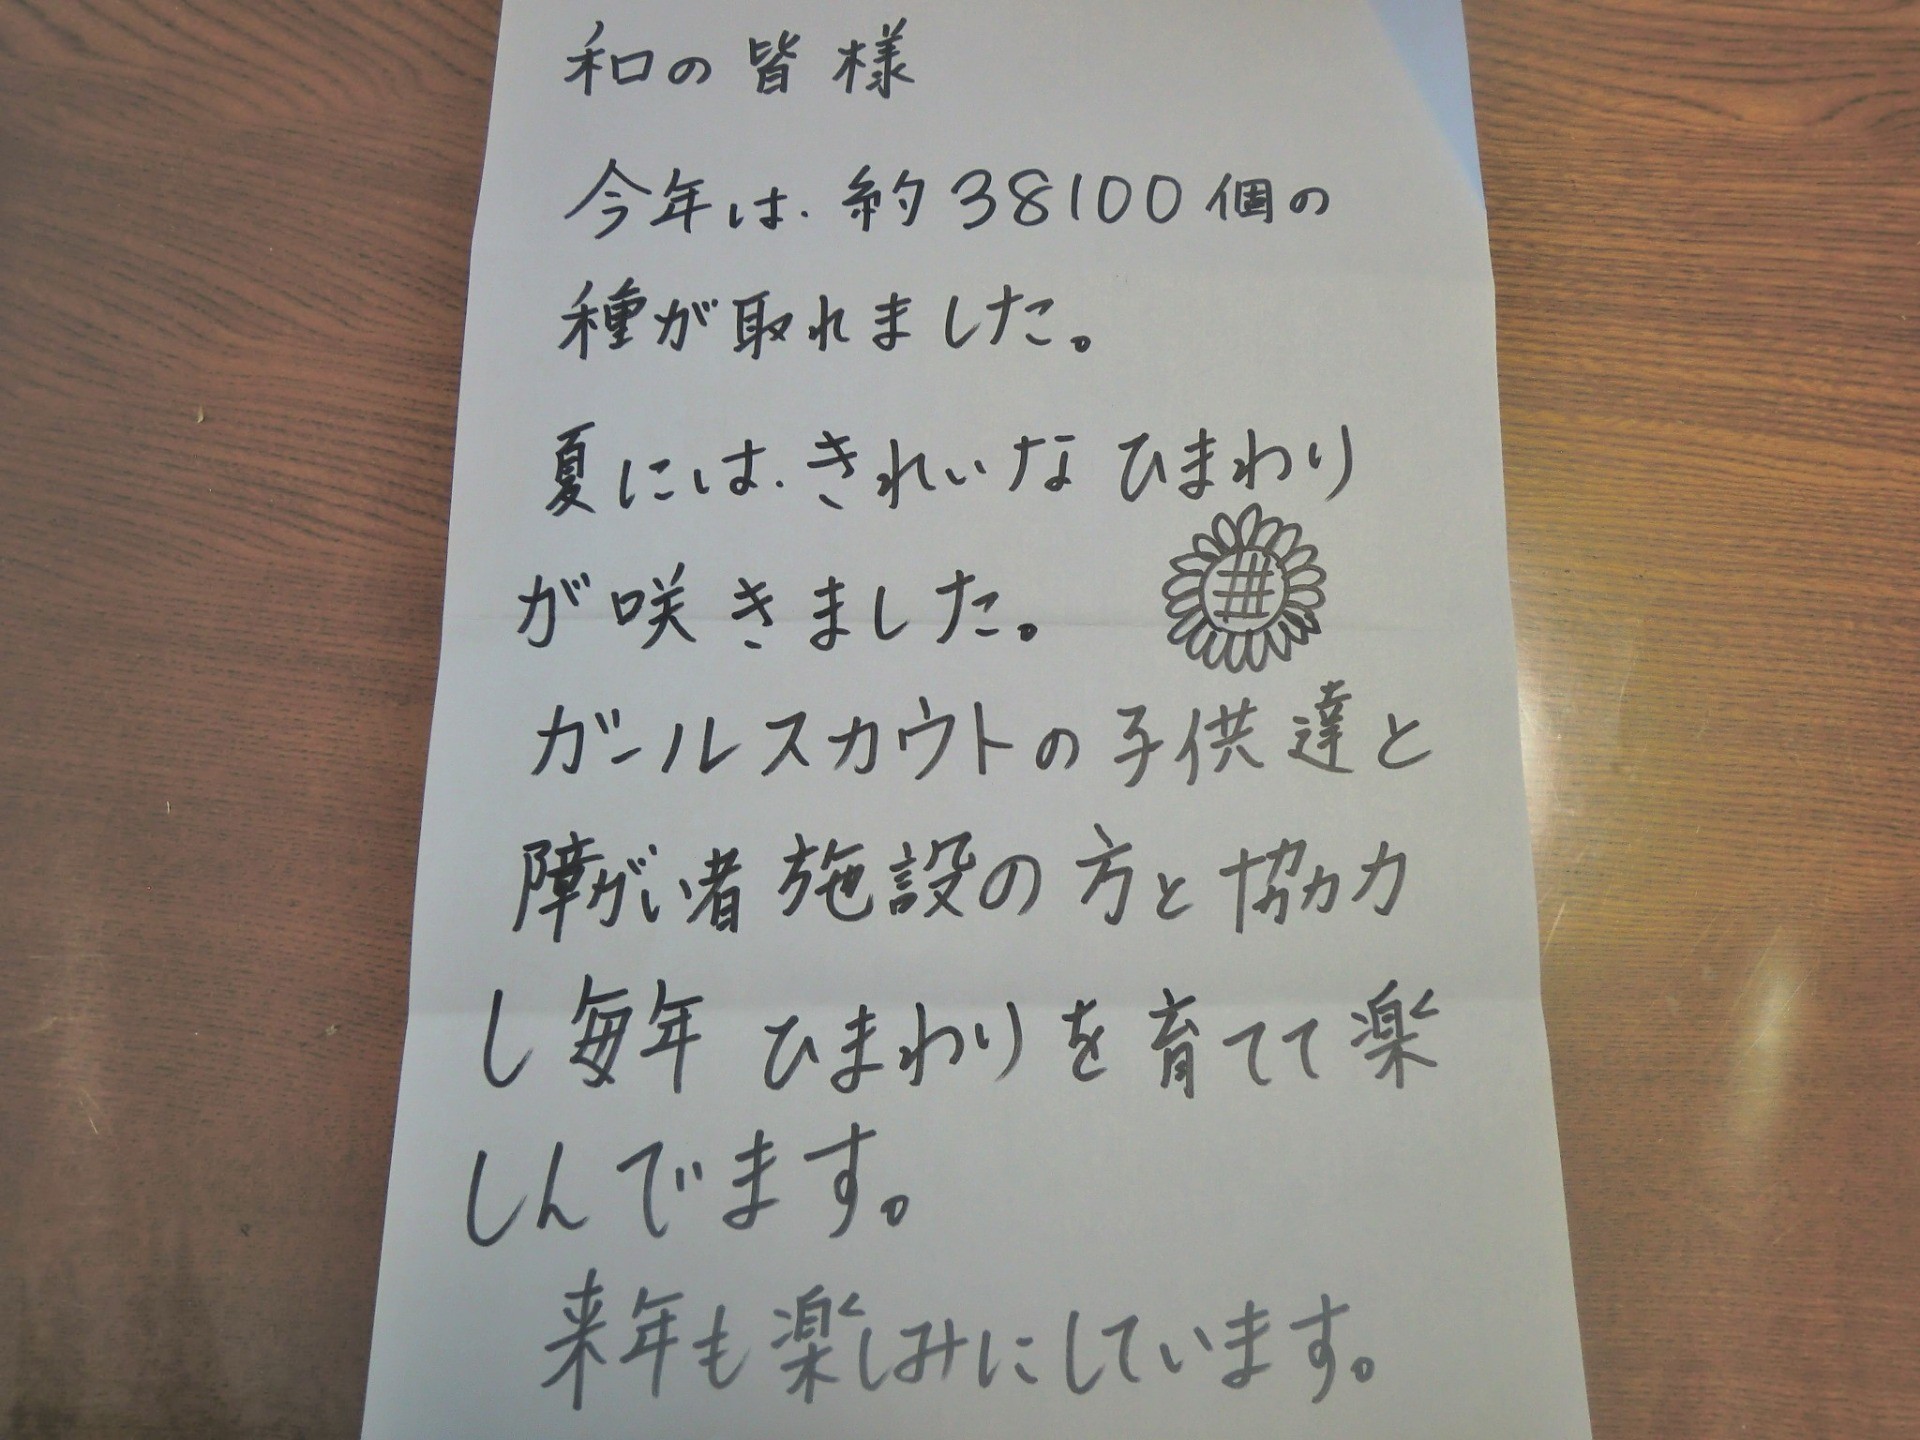 和の皆様
今年は、約38100個の
種が取れました。
夏には、きれいなひまわり
が咲きました。
ガールスカウトの子供達と
障がい者施設の方と協力
し毎年ひまわりを育てて楽
しんでます。
来年も楽しみにしています。